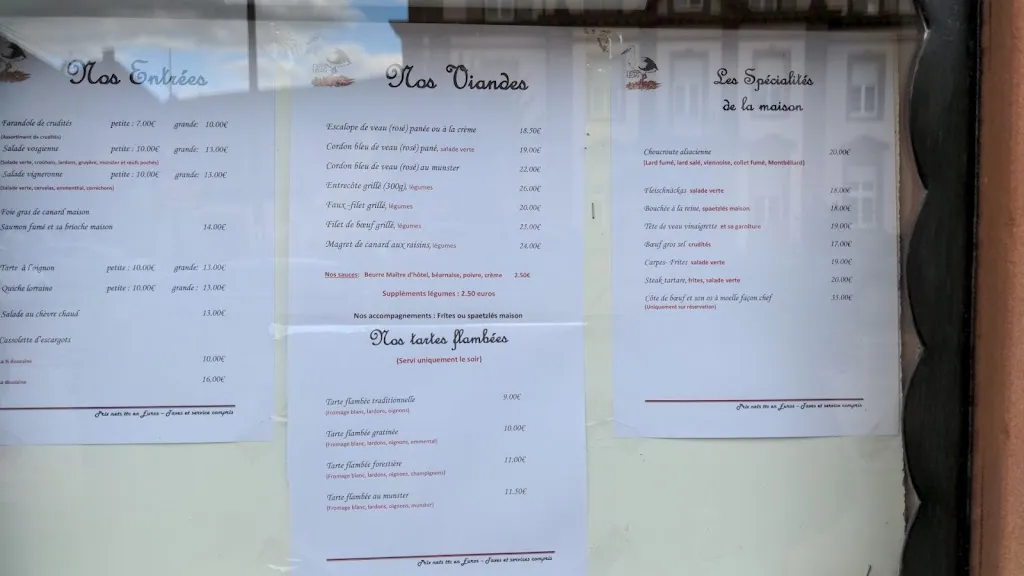 Nos Entrées
Farandole de crudités petite : 7.00€ grande: 10.00€
(Assortiment de crudités)
Salade vosgienne petite : 10.00€ grande: 13.00€
(Salade verte, croûtons, lardons, gruyère, munster et œufs pochés)
Salade vigneronne petite : 10.00€ grande: 13.00€
(Salade verte, cervelas, emmental, cornichons)
Foie gras de canard maison
Saumon fumé et sa brioche maison 14.00€
Tarte à l'oignon petite : 10.00€ grande: 13.00€
Quiche lorraine petite : 10.00€ grande : 13.00€
Salade au chèvre chaud 13.00€
Cassolette d'escargots
10.00€
16.00€
Prix nets ttc en Euros – Taxes et service compris
Nos Viandes
Escalope de veau (rosé) panée ou à la crème 18.50€
Cordon bleu de veau (rosé) pané, salade verte 19.00€
Cordon bleu de veau (rosé) au munster 22.00€
Entrecôte grillé (300g), légumes 26.00€
Faux-filet grillé, légumes 20.00€
Filet de bœuf grillé, légumes 25.00€
Magret de canard aux raisins, légumes 24.00€
Nos sauces: Beurre Maître d'hôtel, béarnaise, poivre, crème 2.50€
Suppléments légumes : 2.50 euros
Nos accompagnements : Frites ou spaetzlés maison
Nos tartes flambées
(Servi uniquement le soir)
Tarte flambée traditionnelle 9.00€
(Fromage blanc, lardons, oignons)
Tarte flambée gratinée 10.00€
(Fromage blanc, lardons, oignons, emmental)
Tarte flambée forestière 11.00€
(Fromage blanc, lardons, oignons, champignons)
Tarte flambée au munster 11.50€
(Fromage blanc, lardons, oignons, munster)
Prix nets ttc en Euros – Taxes et services compris
Les Spécialités
de la maison
Choucroute alsacienne 20.00€
(Lard fumé, lard salé, viennoise, collet fumé, Montbéliard)
Fleischnäckas salade verte 18.00€
Bouchée à la reine, spaetzlés maison 18.00€
Tête de veau vinaigrette et sa garniture 19.00€
Bœuf gros sel crudités 17.00€
Carpes- Frites salade verte 19.00€
Steak tartare, frites, salade verte 20.00€
Côte de bœuf et son os à moelle façon chef 35.00€
(Uniquement sur réservation)
Prix nets ttc en Euros – Taxes et service compris